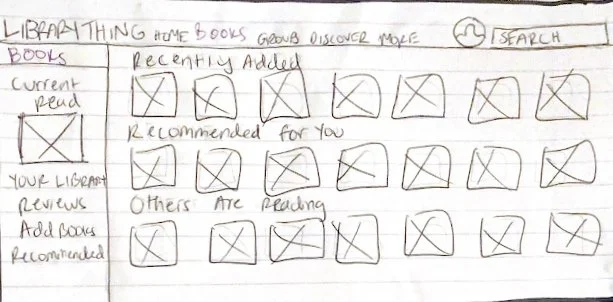 LIBRARYTHING HOME BOOKS GROUPS DISCOVER MORE SEARCH
BOOKS
Current
Read
YOUR LIBRARY
Reviews
Add Books
Recommended
Recently Added
Recommended for You
Others Are Reading